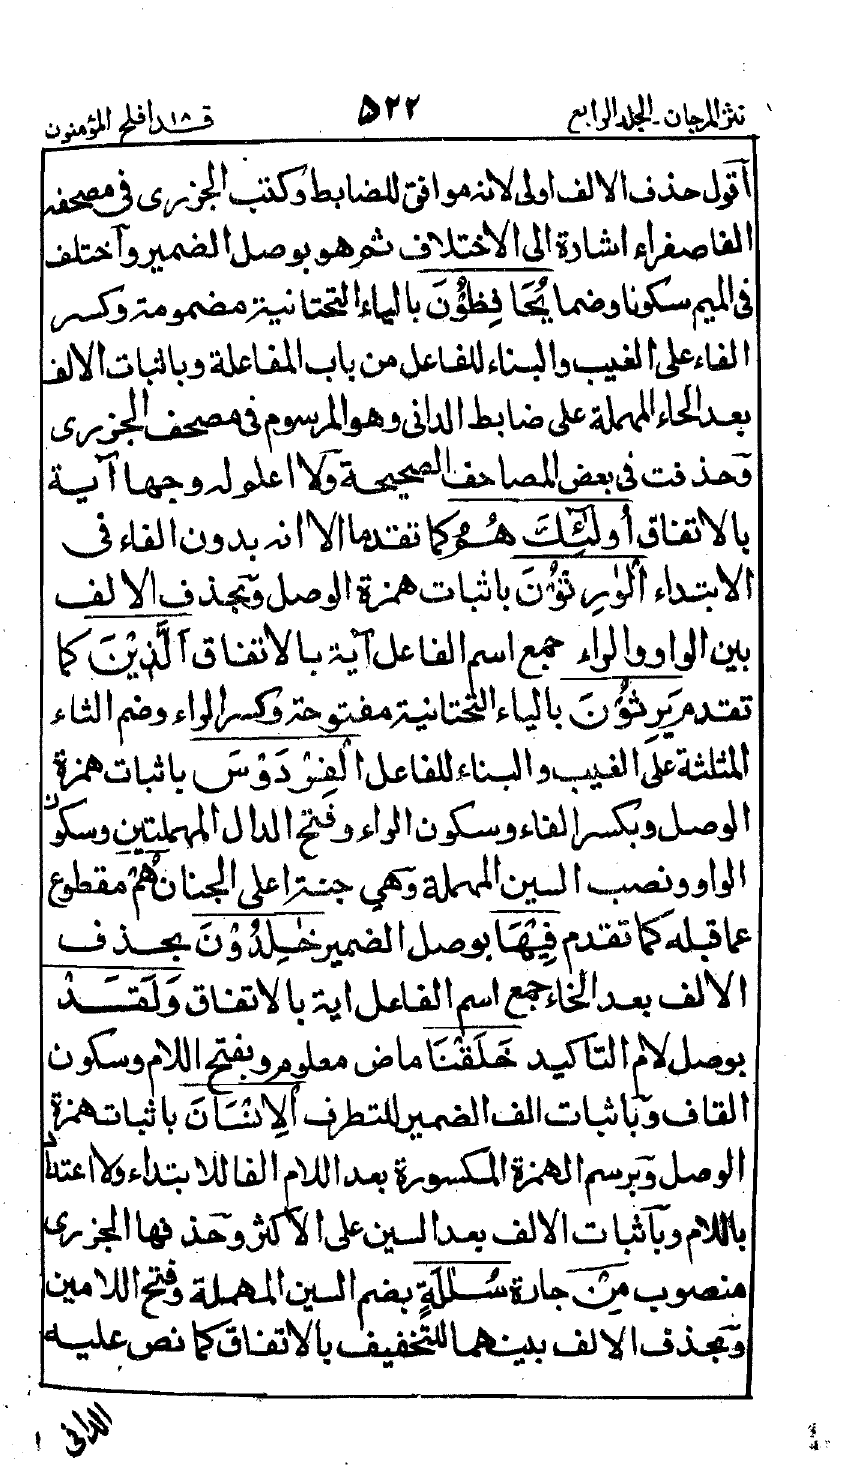 نثر المرجان - الجلد الرابع
۵۲۲
قد افلح ۱۸ المؤمنون
أقول حذف الالف اولى لانه موافق للضابط وكتب الجزرى فى مصحفه
الفا صفراء اشارة الى الاختلاف ثم هو بوصل الضمير وآختلف
فى الميم سكونا وضما يُحَافِظُوْنَ بالياء التحتانية مضمومة وكسر
الفاء على الغيب والبناء للفاعل من باب المفاعلة وباثبات الالف
بعد الحاء المهملة على ضابط الدانى وهو المرسوم فى مصحف الجزرى
وَحذفت فى بعض المصاحف الصحيحة وَلا اعلم له وجها آية
بالاتفاق أُولٰٓئِكَ هُمُ كما تقدما الا انه بدون الفاء فى
الابتداء الْوٰرِثُوْنَ باثبات همزة الوصل وَبحذف الالف
بين الواو والراء جمع اسم الفاعل آية بالاتفاق اَلَّذِيْنَ كما
تقدم يَرِثُوْنَ بالياء التحتانية مفتوحة وكسر الراء وضم الثاء
المثلثة على الغيب والبناء للفاعل الْفِرْدَوْسَ باثبات همزة
الوصل وبكسر الفاء وسكون الراء وفتح الدال المهملتين وسكون
الواو ونصب السين المهملة وَهى جنة اعلى الجنان هُمْ مقطوع
عما قبله كما تقدم فِيْهَا بوصل الضمير خٰلِدُوْنَ بحذف
الالف بعد الخاء جمع اسم الفاعل اية بالاتفاق وَلَقَدْ
بوصل لام التاكيد خَلَقْنَا ماض معلوم وبفتح اللام وسكون
القاف وَباثبات الف الضمير للتطرف الْاِنْسَانَ باثبات همزة
الوصل وَبرسم الهمزة المكسورة بعد اللام الفا للابتداء ولا اعتداد
باللام وبآثبات الالف بعد السين على الاكثر وحَذفها الجزرى
منصوب مِنْ جارة سُلٰلَةٍ بضم السين المهملة وفتح اللامين
وَبحذف الالف بينهما للتخفيف بالاتفاق كما نص عليه
الدانى